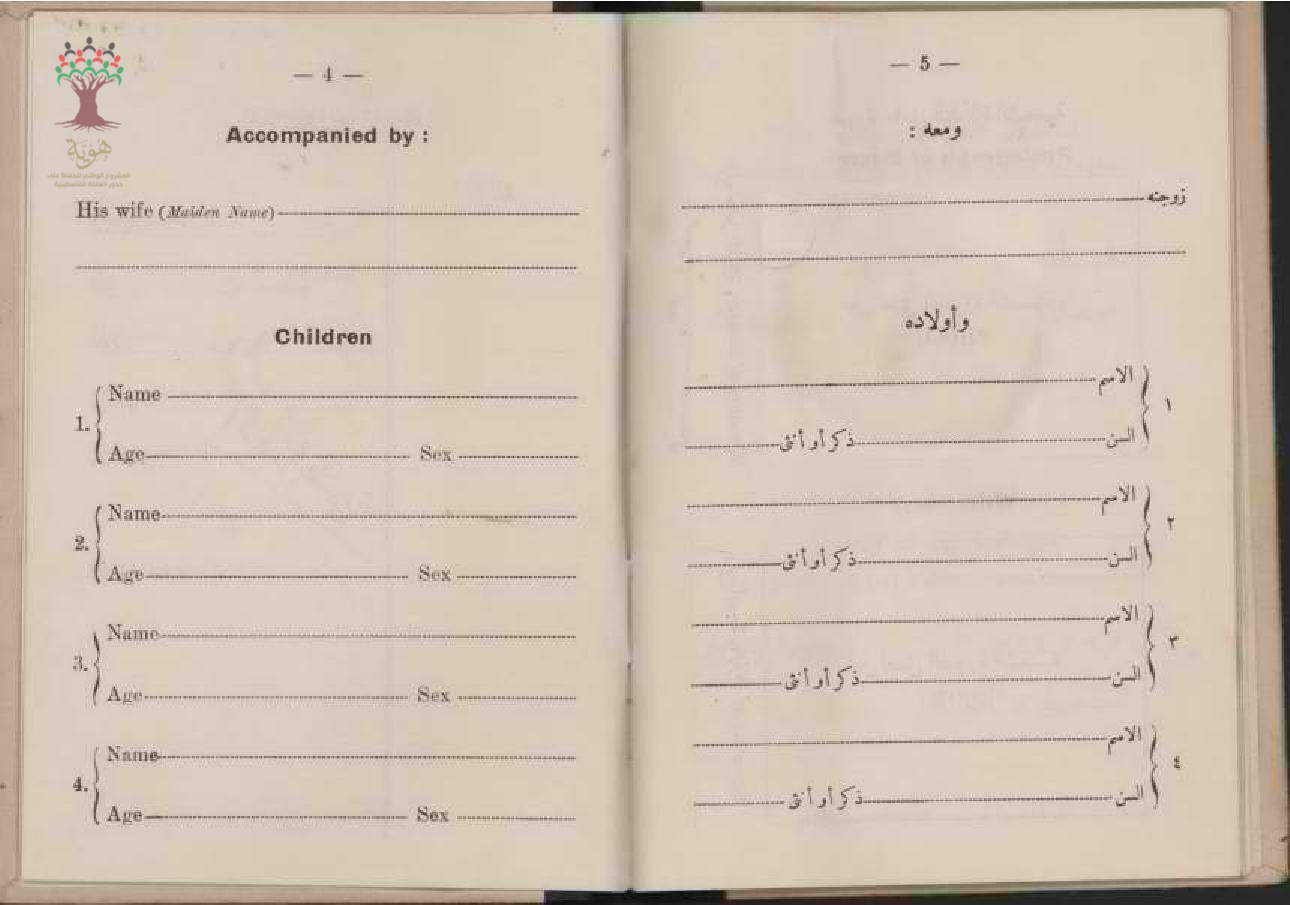 هوية
المشروع الوطني للحفاظ على
جذور العائلة الفلسطينية
— 4 —
Accompanied by :
His wife (Maiden Name)
Children
1.
Name
Age Sex
2.
Name
Age Sex
3.
Name
Age Sex
4.
Name
Age Sex
— 5 —
ومعه :
زوجته
وأولاده
١
الاسم
السن ذكر أو أنثى
٢
الاسم
السن ذكر أو أنثى
٣
الاسم
السن ذكر أو أنثى
٤
الاسم
السن ذكر أو أنثى